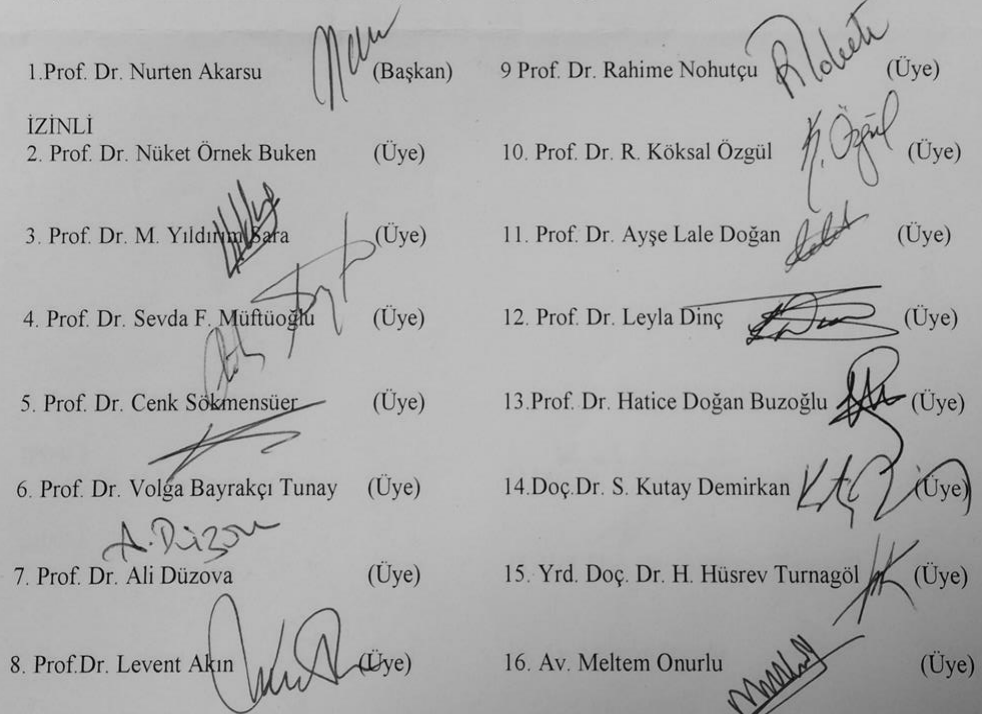 1.Prof. Dr. Nurten Akarsu (Başkan)
İZİNLİ
2. Prof. Dr. Nüket Örnek Buken (Üye)
3. Prof. Dr. M. Yıldırım Sara (Üye)
4. Prof. Dr. Sevda F. Müftüoğlu (Üye)
5. Prof. Dr. Cenk Sökmensüer (Üye)
6. Prof. Dr. Volga Bayrakçı Tunay (Üye)
A. Düzova
7. Prof. Dr. Ali Düzova (Üye)
8. Prof.Dr. Levent Akın (Üye)
9 Prof. Dr. Rahime Nohutçu (Üye)
K. Özgül
10. Prof. Dr. R. Köksal Özgül (Üye)
11. Prof. Dr. Ayşe Lale Doğan (Üye)
12. Prof. Dr. Leyla Dinç (Üye)
13.Prof. Dr. Hatice Doğan Buzoğlu (Üye)
14.Doç.Dr. S. Kutay Demirkan (Üye)
15. Yrd. Doç. Dr. H. Hüsrev Turnagöl (Üye)
16. Av. Meltem Onurlu (Üye)